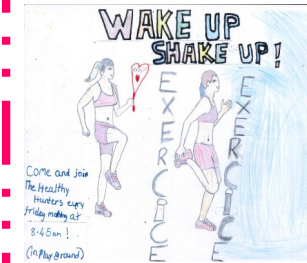 WAKE UP
SHAKE UP!
EXERCiCE
EXERCiCE
Come and join
The Healthy
Hunters every
friday mording at
8.45am!
(in playground)